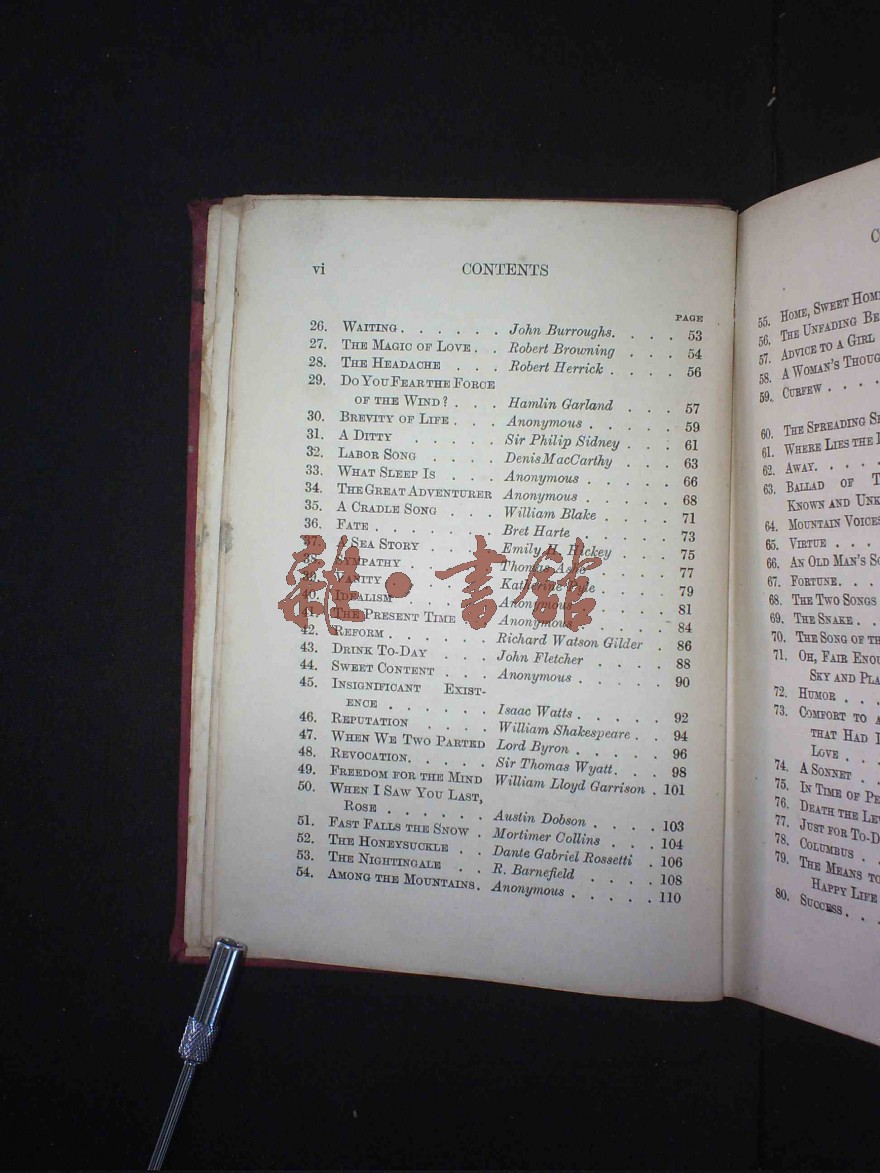 vi CONTENTS
PAGE
26. WAITING . . . . . . John Burroughs. . . . 53
27. THE MAGIC OF LOVE . . Robert Browning . . . 54
28. THE HEADACHE . . . Robert Herrick . . . . 56
29. DO YOU FEAR THE FORCE
OF THE WIND? . . . Hamlin Garland . . . 57
30. BREVITY OF LIFE . . . Anonymous . . . . . 59
31. A DITTY . . . . . Sir Philip Sidney . . . 61
32. LABOR SONG . . . . Denis MacCarthy . . . 63
33. WHAT SLEEP IS . . . Anonymous . . . . . 66
34. THE GREAT ADVENTURER Anonymous . . . . . 68
35. A CRADLE SONG . . . William Blake . . . . 71
36. FATE . . . . . . . Bret Harte . . . . 73
37. A SEA STORY . . . . Emily H. Hickey . . . 75
38. SYMPATHY . . . . Thomas . . . . 77
39. VANITY . . . . . Katherine Pyle . . . . 79
40. IDEALISM . . . . . Anonymous . . . . 81
41. THE PRESENT TIME . Anonymous . . . . . 84
42. REFORM . . . . . . Richard Watson Gilder . 86
43. DRINK TO-DAY . . . John Fletcher . . . . 88
44. SWEET CONTENT . . . Anonymous . . . . . 90
45. INSIGNIFICANT EXIST-
ENCE . . . . . . Isaac Watts . . . . . 92
46. REPUTATION . . . . William Shakespeare . . 94
47. WHEN WE TWO PARTED Lord Byron . . . . . 96
48. REVOCATION. . . . . Sir Thomas Wyatt. . . 98
49. FREEDOM FOR THE MIND William Lloyd Garrison . 101
50. WHEN I SAW YOU LAST,
ROSE . . . . . . Austin Dobson . . . . 103
51. FAST FALLS THE SNOW . Mortimer Collins . . . 104
52. THE HONEYSUCKLE . . Dante Gabriel Rossetti . 106
53. THE NIGHTINGALE . . R. Barnefield . . . . 108
54. AMONG THE MOUNTAINS. Anonymous . . . . . 110
55. HOME, SWEET
56. THE UNFADING
57. ADVICE TO A GIRL
58. A WOMAN'S
59. CURFEW . . . .
60. THE SPREADING
61. WHERE LIES THE
62. AWAY. . . . .
63. BALLAD OF
KNOWN AND
64. MOUNTAIN
65. VIRTUE . . .
66. AN OLD MAN'S
67. FORTUNE. . . .
68. THE TWO SONGS
69. THE SNAKE . . .
70. THE SONG OF
71. OH, FAIR
SKY AND
72. HUMOR . . .
73. COMFORT TO A
THAT HAD
LOVE . . . .
74. A SONNET . .
75. IN TIME OF
76. DEATH THE
77. JUST FOR
78. COLUMBUS . .
79. THE MEANS TO
HAPPY LIFE
80. SUCCESS. . . .
雜·書館